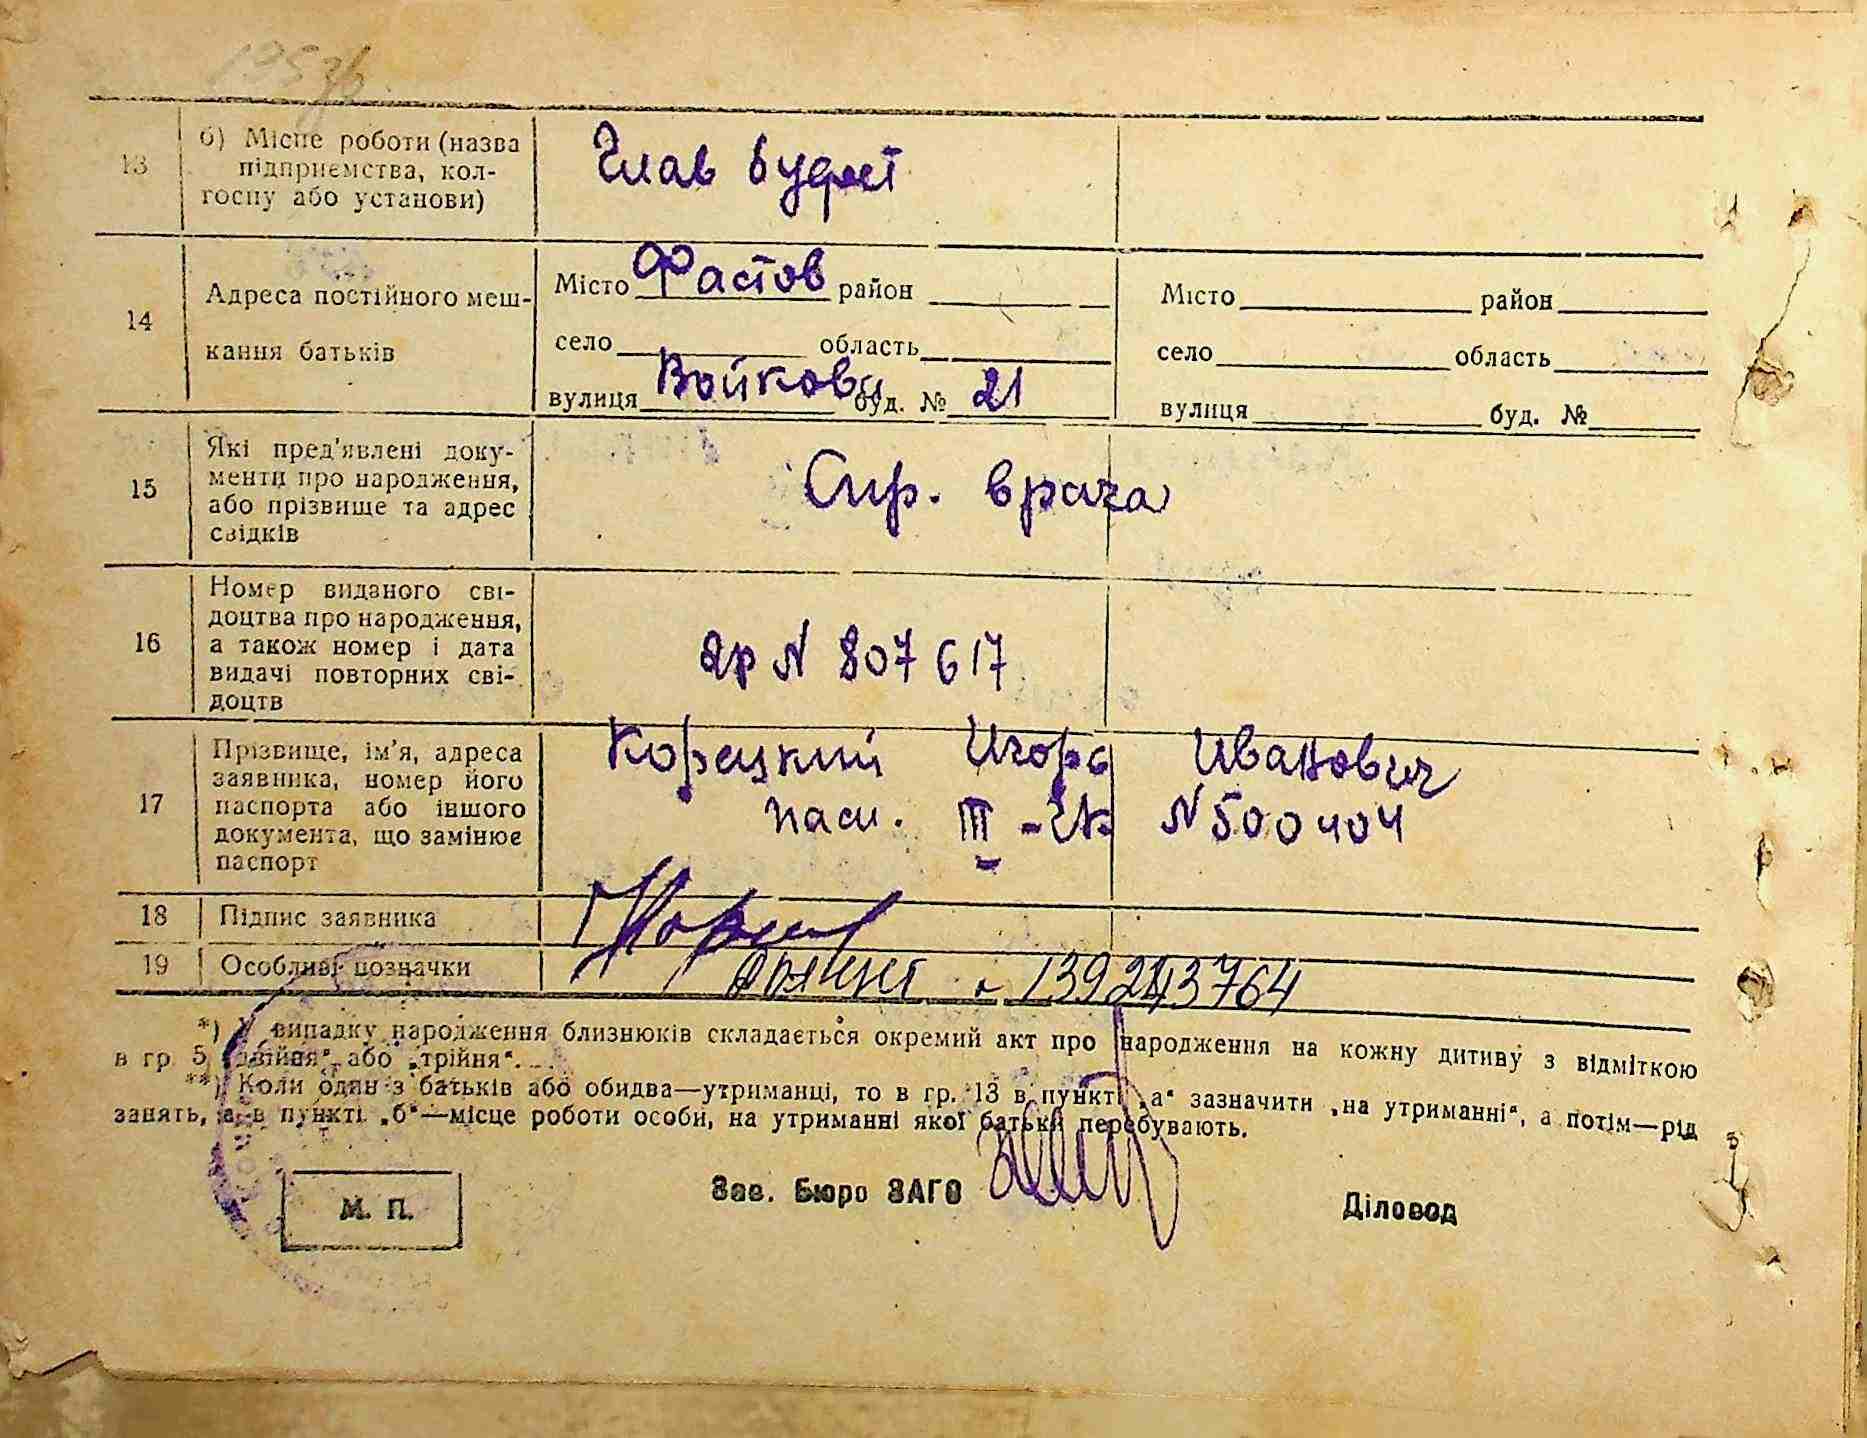 13
б) Місце роботи (назва
підприємства, кол-
госпу або установи)
Глав
14
Адреса постійного меш-
кання батьків
Місто Фастов район
село область
вулиця Войкова буд. № 21
Місто район
село область
вулиця буд. №
15
Які пред'явлені доку-
менти про народження,
або прізвище та адрес
свідків
Спр. врача
16
Номер виданого сві-
доцтва про народження,
а також номер і дата
видачі повторних сві-
доцтв
N 807617
17
Прізвище, ім'я, адреса
заявника, номер його
паспорта або іншого
документа, що замінює
паспорт
Корецкий Игорь Иванович
пасп. III - N 500404
18
Підпис заявника
19
Особливі позначки
*) У випадку народження близнюків складається окремий акт про народження на кожну дитину з відміткою
в гр. 5 „двійня“ або „трійня“.
**) Коли один з батьків або обидва—утриманці, то в гр. 13 в пункті „а“ зазначити „на утриманні“, а потім—рід
занять, а в пункті „б“—місце роботи особи, на утриманні якої батьки перебувають.
М. П.
Зав. Бюро ЗАГС
Діловод